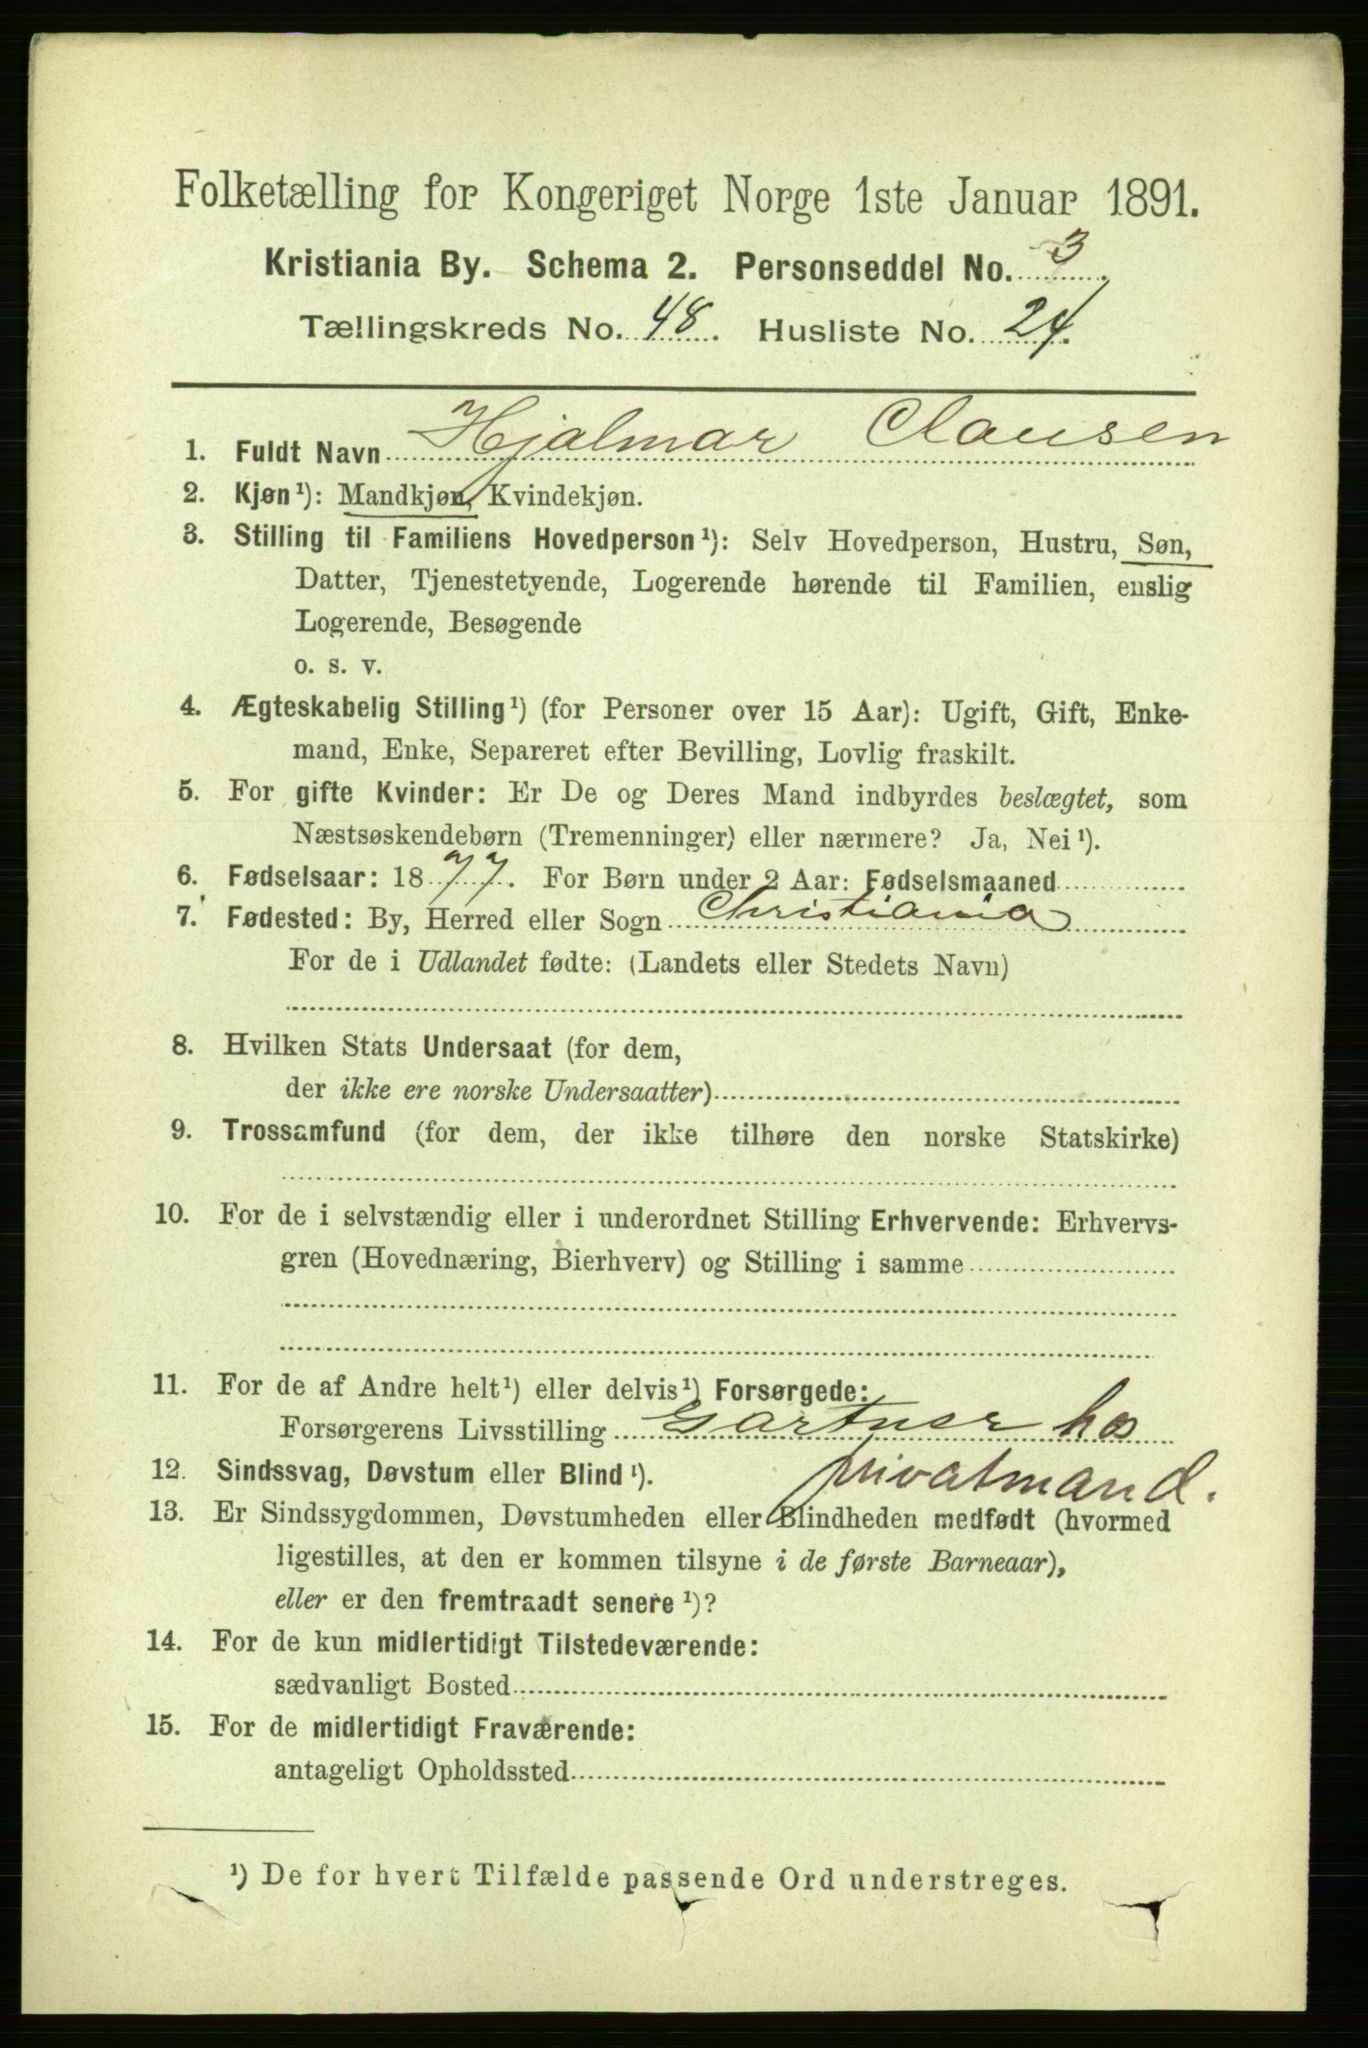 Folketælling for Kongeriget Norge 1ste Januar 1891.
Kristiania By. Schema 2. Personseddel No. 3.
Tællingskreds No. 48. Husliste No. 24.
1. Fuldt Navn Hjalmar Clausen
2. Kjøn¹): Mandkjøn, Kvindekjøn.
3. Stilling til Familiens Hovedperson¹): Selv Hovedperson, Hustru, Søn,
Datter, Tjenestetyende, Logerende hørende til Familien, enslig
Logerende, Besøgende
o. s. v.
4. Ægteskabelig Stilling¹) (for Personer over 15 Aar): Ugift, Gift, Enke-
mand, Enke, Separeret efter Bevilling, Lovlig fraskilt.
5. For gifte Kvinder: Er De og Deres Mand indbyrdes beslægtet, som
Næstsøskendebørn (Tremenninger) eller nærmere? Ja, Nei¹).
6. Fødselsaar: 1877. For Børn under 2 Aar: Fødselsmaaned
7. Fødested: By, Herred eller Sogn Christiania
For de i Udlandet fødte: (Landets eller Stedets Navn)
8. Hvilken Stats Undersaat (for dem,
der ikke ere norske Undersaatter)
9. Trossamfund (for dem, der ikke tilhøre den norske Statskirke)
10. For de i selvstændig eller i underordnet Stilling Erhvervende: Erhvervs-
gren (Hovednæring, Bierhverv) og Stilling i samme
11. For de af Andre helt¹) eller delvis¹) Forsørgede:
Forsørgerens Livsstilling Gartner hos
privatmand.
12. Sindssvag, Døvstum eller Blind¹).
13. Er Sindssygdommen, Døvstumheden eller Blindheden medfødt (hvormed
ligestilles, at den er kommen tilsyne i de første Barneaar),
eller er den fremtraadt senere¹)?
14. For de kun midlertidigt Tilstedeværende:
sædvanligt Bosted
15. For de midlertidigt Fraværende:
antageligt Opholdssted
¹) De for hvert Tilfælde passende Ord understreges.